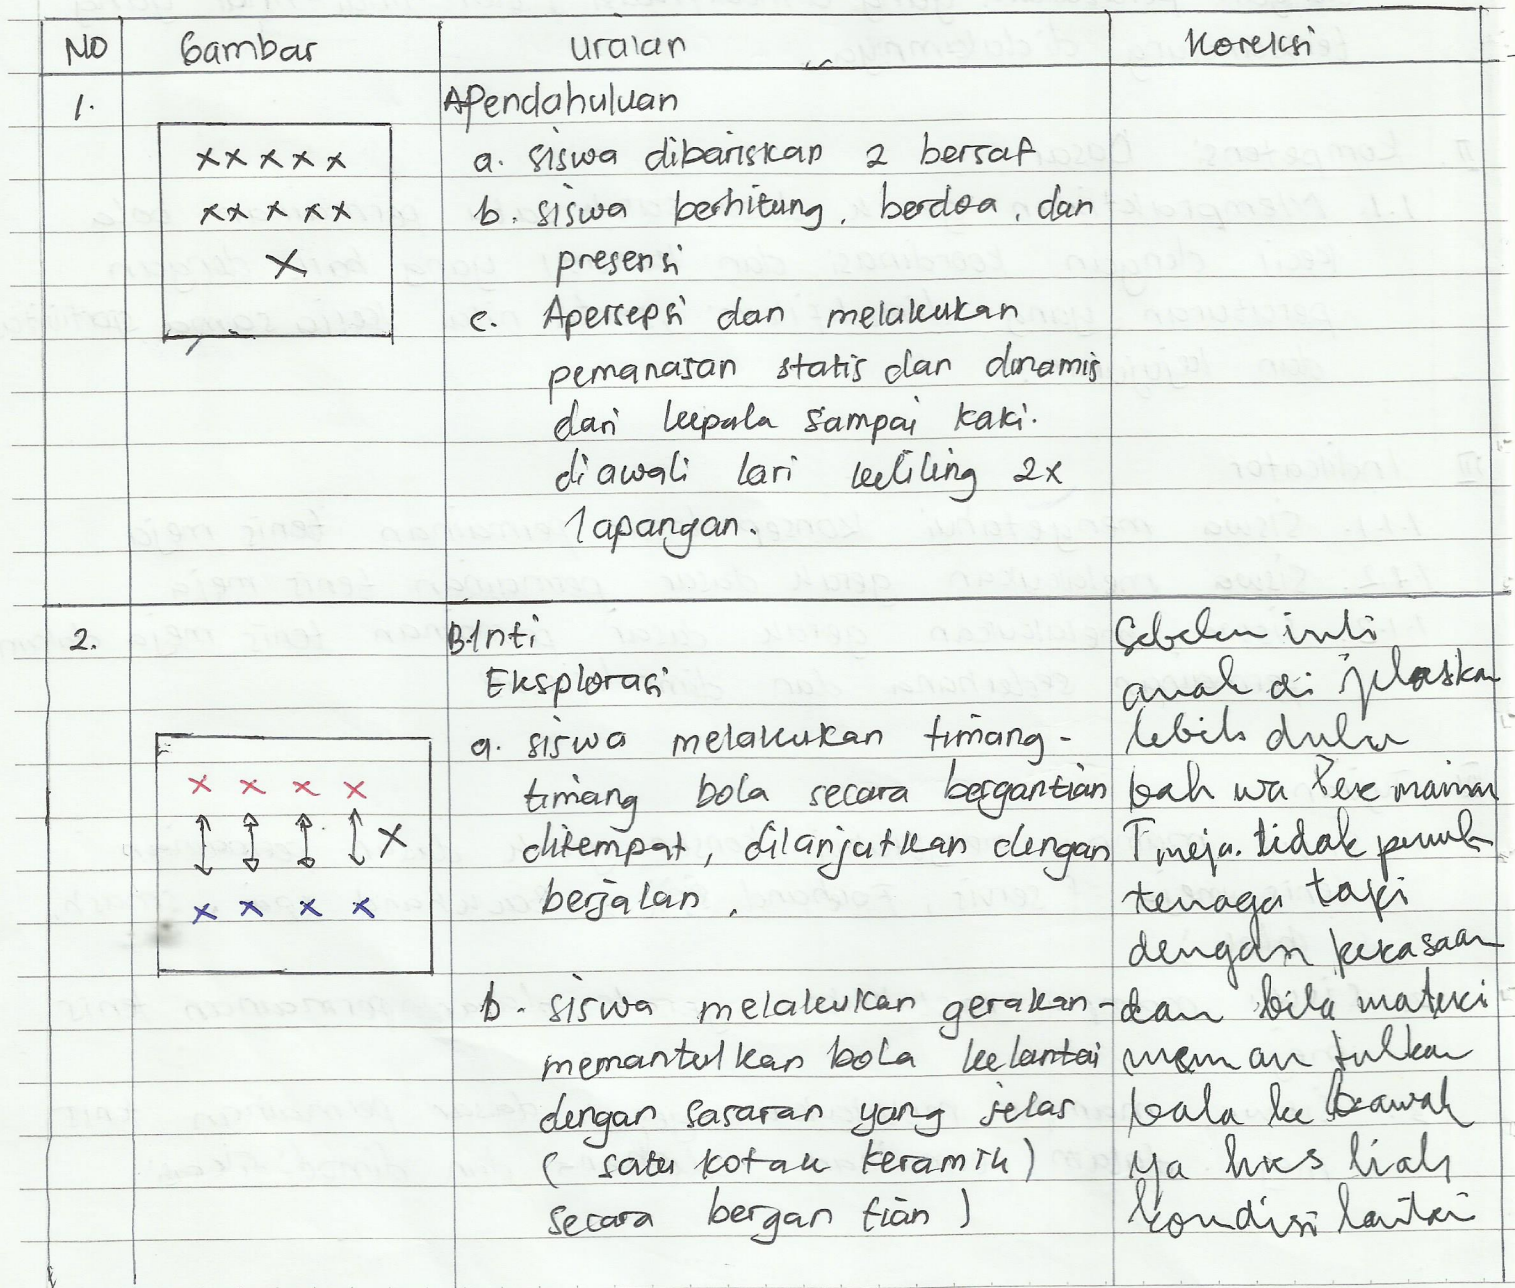 No Gambar Uraian Koreksi
1.
A Pendahuluan
x x x x x
x x x x x
x
a. siswa dibariskan 2 bersaf
b. siswa berhitung, berdoa, dan
presensi
c. Apersepsi dan melakukan
pemanasan statis dan dinamis
dari kepala sampai kaki.
diawali lari keliling 2x
lapangan.
2.
B. Inti
Eksplorasi
x x x x
x
x x x x
a. siswa melakukan timang-
timang bola secara bergantian
ditempat, dilanjutkan dengan
berjalan.
b. siswa melakukan gerakan-
memantulkan bola kelantai
dengan sasaran yang jelas
(satu kotak keramik)
secara bergantian)
Sebelum inti
anak di jelaskan
lebih dulu
bahwa
T meja. tidak
tenaga tapi
dengan perasaan
dan bila materi
memantulkan
bola ke bawah
ya hrs liah
kondisi lantai